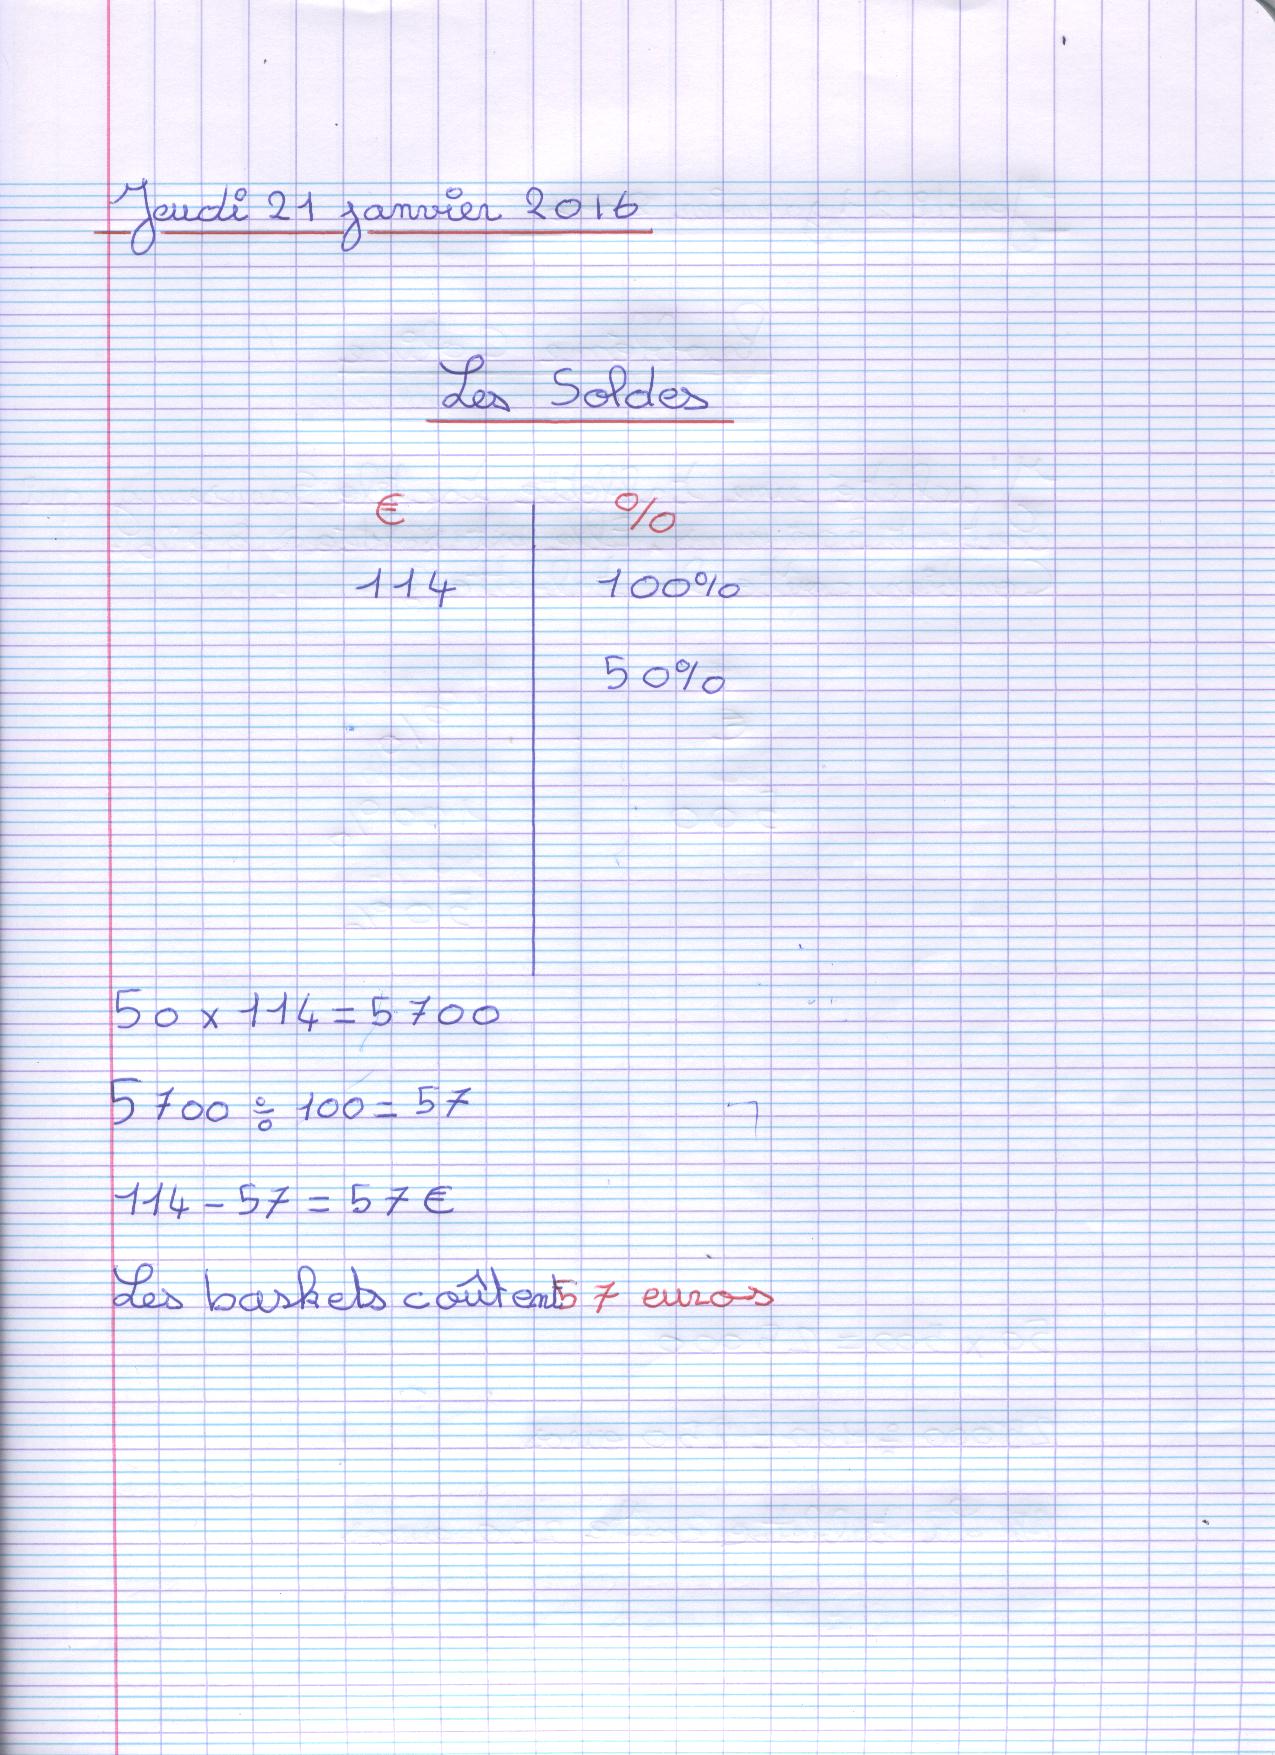 Jeudi 21 janvier 2016
Les Soldes
€ %
114 100%
50%
50 x 114 = 5700
5700 ÷ 100 = 57
114 - 57 = 57 €
Les baskets coûtent 57 euros